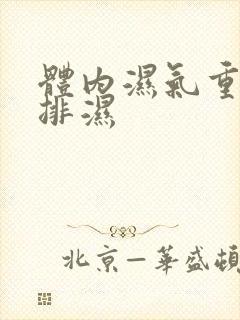 體內濕氣重
排濕
北京—華盛頓